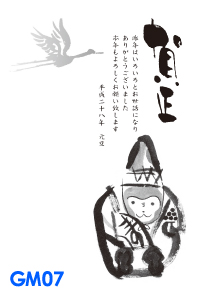 賀正
昨年はいろいろとお世話になり
ありがとうございました
本年もよろしくお願い致します
平成二十八年 元旦
GM07